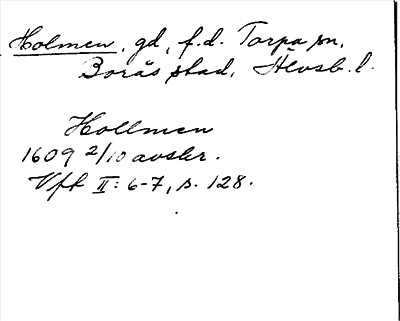 Holmen, gd, f.d. Torpa sn,
Borås stad, Älvsb. l.
Hollmen
1609 2/10 avskr.
Vft II: 6-7, s. 128.